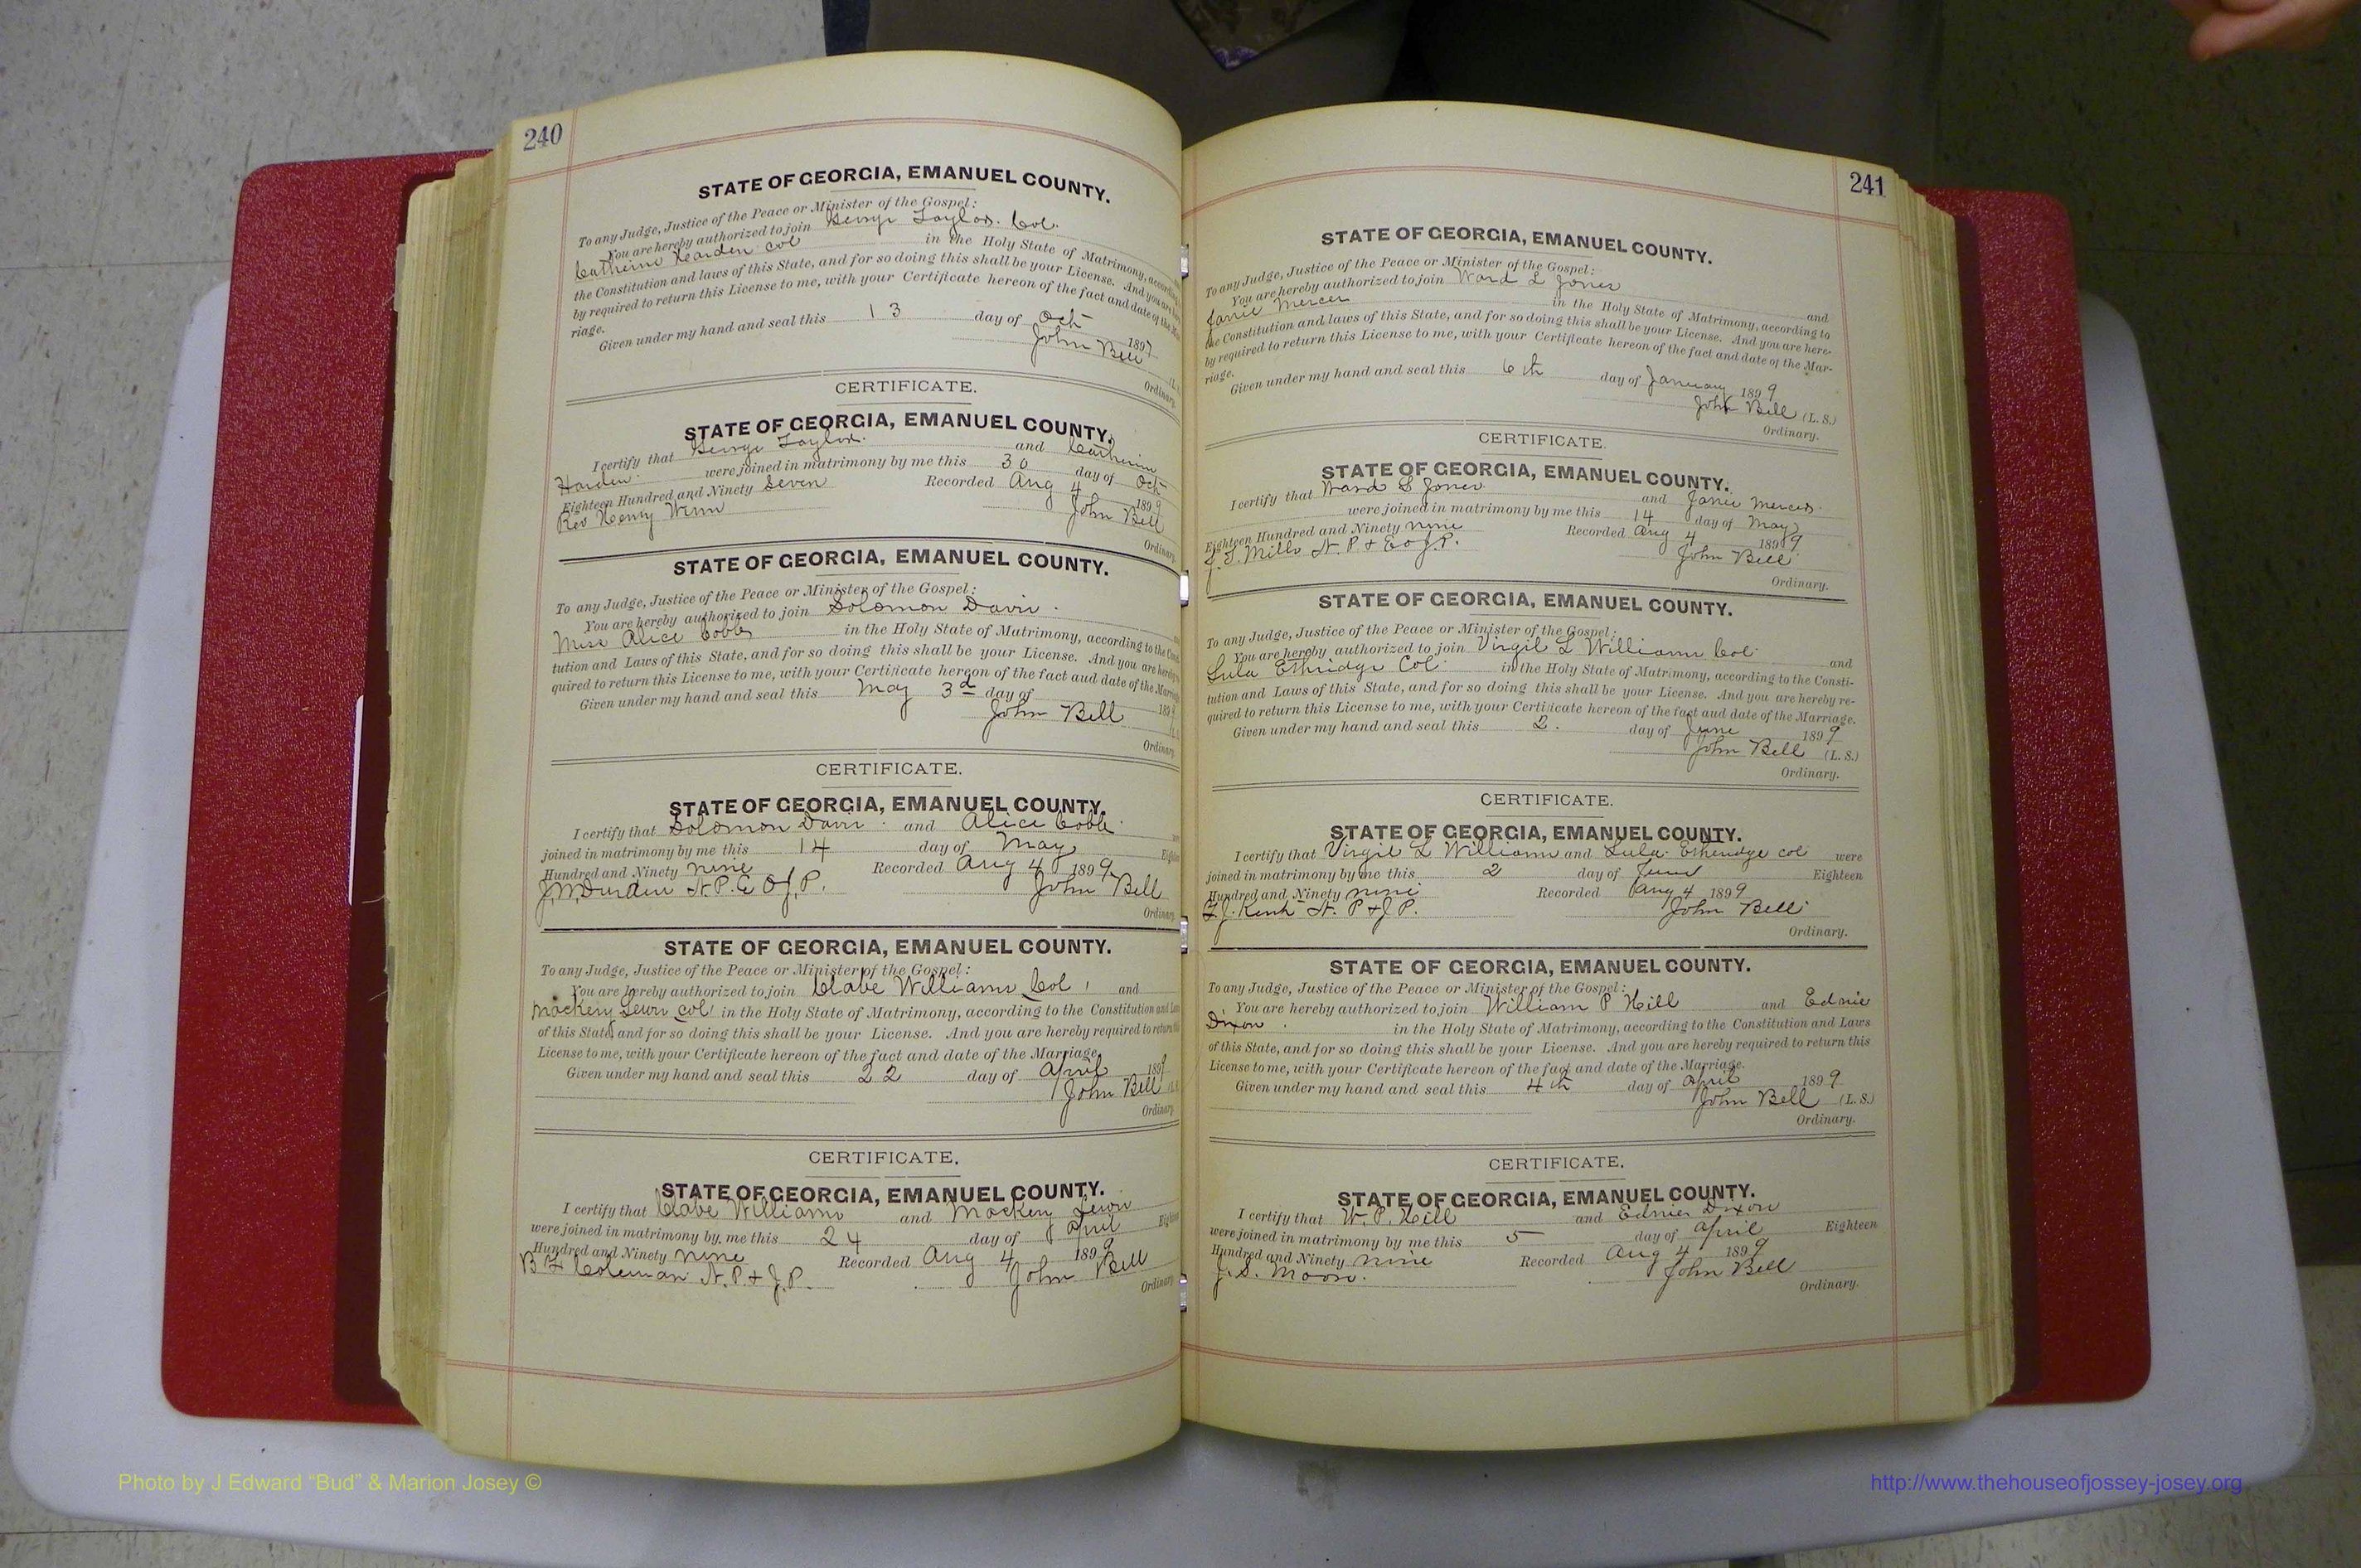 240
STATE OF GEORGIA, EMANUEL COUNTY.
To any Judge, Justice of the Peace or Minister of the Gospel:
You are hereby authorized to join George Taylor. Col.
Catherine Harden col in the Holy State of Matrimony, according
the Constitution and laws of this State, and for so doing this shall be your License. And you are here
by required to return this License to me, with your Certificate hereon of the fact and date of the Mar
riage.
Given under my hand and seal this 13 day of Oct 1897
John Bell (L.
Ordinary.
CERTIFICATE.
STATE OF GEORGIA, EMANUEL COUNTY.
I certify that George Taylor. and Catherine
Harden. were joined in matrimony by me this 30 day of Oct
Eighteen Hundred and Ninety Seven Recorded Aug 4 1899
Rev Henry Winn John Bell
Ordinary.
STATE OF GEORGIA, EMANUEL COUNTY.
To any Judge, Justice of the Peace or Minister of the Gospel:
You are hereby authorized to join Solomon Davis.
Miss Alice Cobb in the Holy State of Matrimony, according to the Const
tution and Laws of this State, and for so doing this shall be your License. And you are hereby
quired to return this License to me, with your Certificate hereon of the fact and date of the Marriage
Given under my hand and seal this May 3d day of 189
John Bell (L.
Ordinary.
CERTIFICATE.
STATE OF GEORGIA, EMANUEL COUNTY.
I certify that Solomon Davis. and Alice Cobb.
joined in matrimony by me this 14 day of May Eighteen
Hundred and Ninety nine Recorded Aug 4 1899
J. M. Durden N. P. E O J. P. John Bell
Ordinary.
STATE OF GEORGIA, EMANUEL COUNTY.
To any Judge, Justice of the Peace or Minister of the Gospel:
You are hereby authorized to join Clabe Williams Col, and
Mackeny Lewis col in the Holy State of Matrimony, according to the Constitution and Laws
of this State, and for so doing this shall be your License. And you are hereby required to return this
License to me, with your Certificate hereon of the fact and date of the Marriage.
Given under my hand and seal this 22 day of April 1899
John Bell (L.
Ordinary.
CERTIFICATE.
STATE OF GEORGIA, EMANUEL COUNTY.
I certify that Clabe Williams and Mackeny Lewis
were joined in matrimony by me this 24 day of April Eighteen
Hundred and Ninety nine Recorded Aug 4 1899
B H Coleman N. P. & J. P. John Bell
Ordinary.
241
STATE OF GEORGIA, EMANUEL COUNTY.
To any Judge, Justice of the Peace or Minister of the Gospel:
You are hereby authorized to join Ward L Jones and
Janie Mercer in the Holy State of Matrimony, according to
the Constitution and laws of this State, and for so doing this shall be your License. And you are here-
by required to return this License to me, with your Certificate hereon of the fact and date of the Mar-
riage.
Given under my hand and seal this 6th day of January 1899
John Bell (L. S.)
Ordinary.
CERTIFICATE.
STATE OF GEORGIA, EMANUEL COUNTY.
I certify that Ward L Jones and Janie Mercer.
were joined in matrimony by me this 14 day of May
Eighteen Hundred and Ninety nine Recorded Aug 4 1899
J. T. Mills N. P. & E o J. P. John Bell
Ordinary.
STATE OF GEORGIA, EMANUEL COUNTY.
To any Judge, Justice of the Peace or Minister of the Gospel:
You are hereby authorized to join Virgil L Williams Col and
Lula Ethridge Col. in the Holy State of Matrimony, according to the Consti-
tution and Laws of this State, and for so doing this shall be your License. And you are hereby re-
quired to return this License to me, with your Certificate hereon of the fact and date of the Marriage.
Given under my hand and seal this 2. day of June 1899
John Bell (L. S.)
Ordinary.
CERTIFICATE.
STATE OF GEORGIA, EMANUEL COUNTY.
I certify that Virgil L Williams and Lula Etheridge col were
joined in matrimony by me this 2 day of June Eighteen
Hundred and Ninety nine Recorded Aug 4 1899
N. P. & J. P. John Bell
Ordinary.
STATE OF GEORGIA, EMANUEL COUNTY.
To any Judge, Justice of the Peace or Minister of the Gospel:
You are hereby authorized to join William P Hill and Ednie
Dixon. in the Holy State of Matrimony, according to the Constitution and Laws
of this State, and for so doing this shall be your License. And you are hereby required to return this
License to me, with your Certificate hereon of the fact and date of the Marriage.
Given under my hand and seal this 4th day of April 1899
John Bell (L. S.)
Ordinary.
CERTIFICATE.
STATE OF GEORGIA, EMANUEL COUNTY.
I certify that W. P. Hill and Ednie Dixon
were joined in matrimony by me this 5 day of April Eighteen
Hundred and Ninety nine Recorded Aug 4 1899
J. S. Moore. John Bell
Ordinary.
Photo by J Edward "Bud" & Marion Josey ©
http://www.thehouseofjossey-josey.org